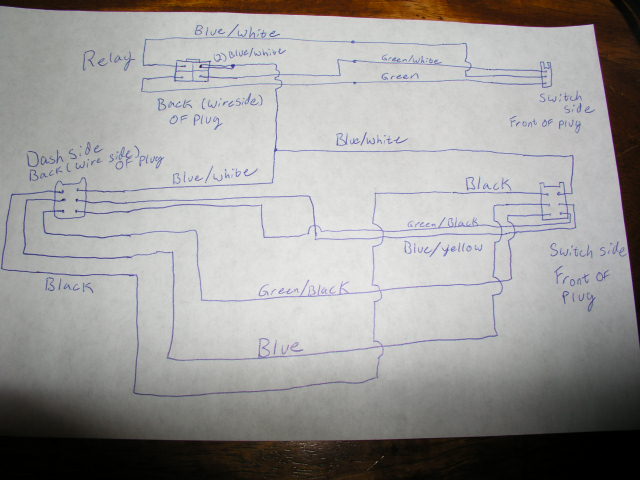 Blue/white
Relay
(2) Blue/white
Green/white
Green
Back (wireside)
OF plug
Switch
side
Front OF plug
Dash side
Back (wire side)
OF plug
Blue/white
Blue/white
Black
Green/Black
Blue/yellow
Switch side
Front OF
plug
Black
Green/Black
Blue